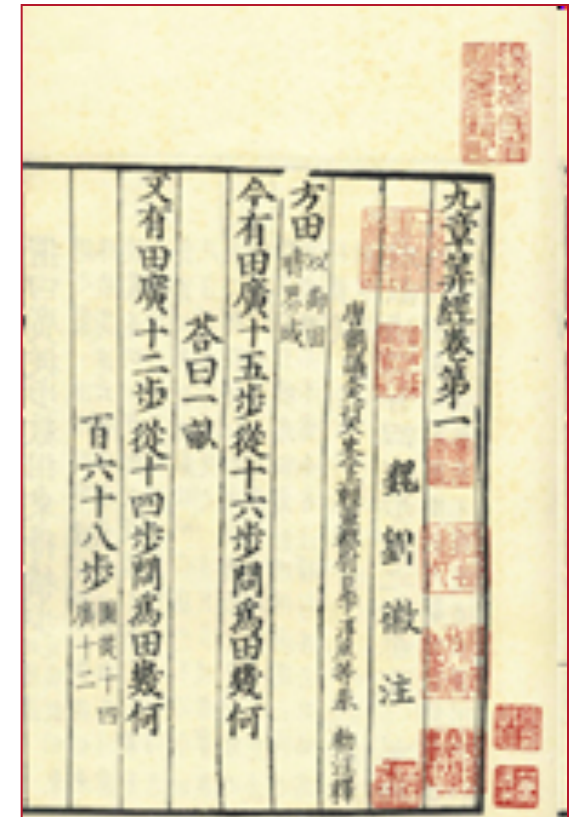 九章筭經卷第一
魏劉徽注
唐朝議大夫行太史令上輕車都尉臣李淳風等奉 勅注釋
方田以御田疇界域
今有田廣十五步從十六步問為田幾何
荅曰一畝
又有田廣十二步從十四步問為田幾何
百六十八步圖從十四廣十二